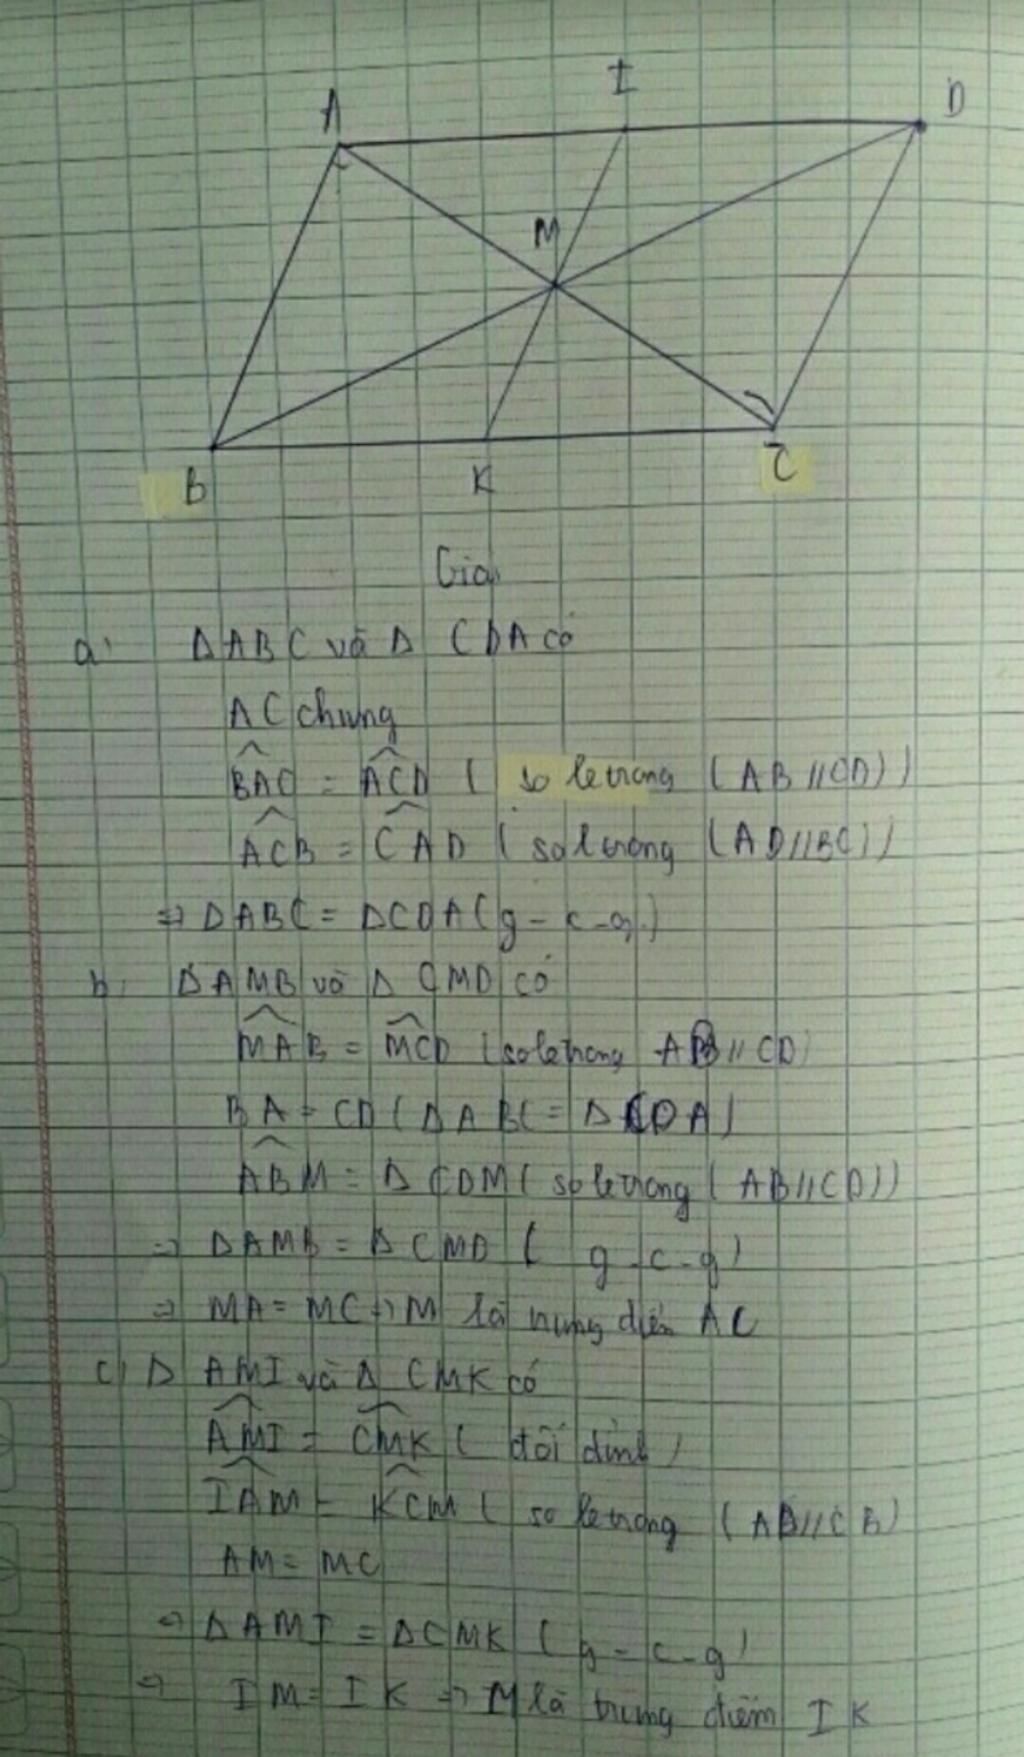 I
A
D
M
B
K
C
Giải
a) Δ ABC và Δ CDA có
AC chung
BAC = ACD ( so le trong ( AB // CD) )
ACB = CAD ( so l trong ( AD // BC) )
=> Δ ABC = Δ CDA ( g - c - g )
b) Δ AMB và Δ CMD có
MAB = MCD ( so le trong AB // CD)
BA = CD ( Δ ABC = Δ CDA )
ABM = Δ CDM ( so le trong ( AB // CD))
=> Δ AMB = Δ CMD ( g - c - g )
=> MA = MC => M là trung điểm AC
c) Δ AMI và Δ CMK có
AMI = CMK ( đối đỉnh )
IAM = KCM ( so le trong ( AD // CB)
AM = MC
=> Δ AMI = Δ CMK ( g - c - g )
=> IM = IK => M là trung điểm IK